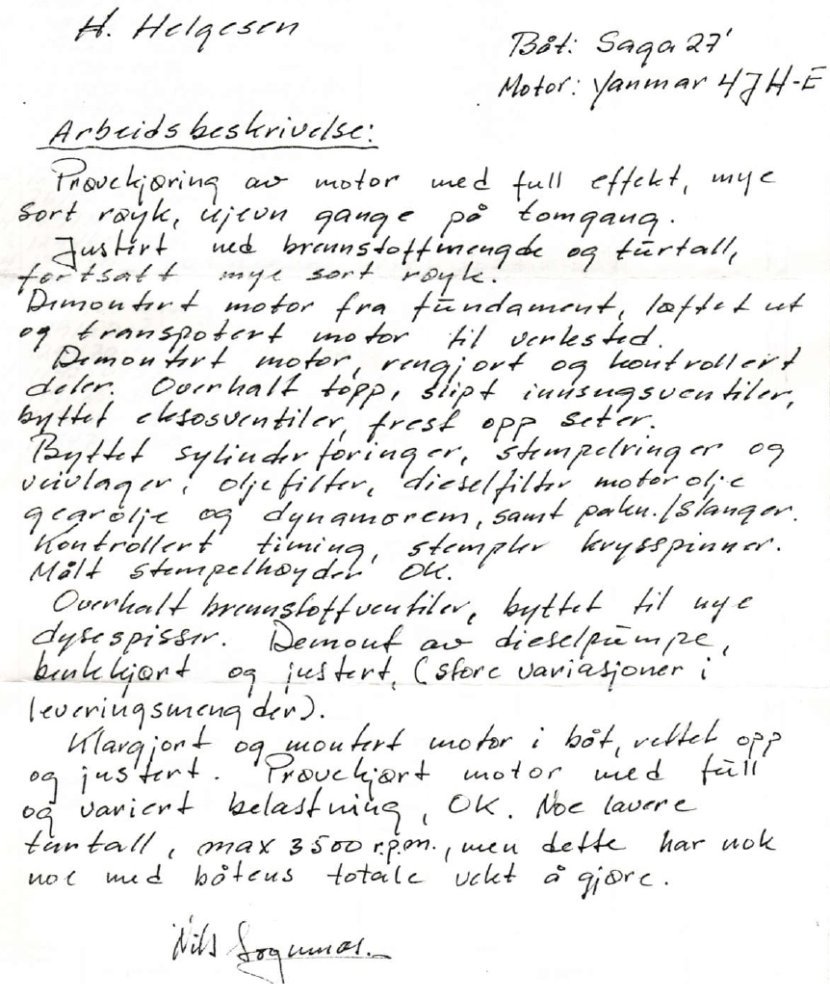 H. Helgesen
Båt: Saga 27'
Motor: Yanmar 4JH-E
Arbeidsbeskrivelse:
Prøvekjøring av motor med full effekt, mye
sort røyk, ujevn gange på tomgang.
Justert ned brennstoffmengde og turtall,
fortsatt mye sort røyk.
Demontert motor fra fundament, løftet ut
og transpotert motor til verksted.
Demontert motor, rengjort og kontrollert
deler. Overhalt topp, slipt innsugsventiler,
byttet eksosventiler, frest opp seter.
Byttet sylinderforinger, stempelringer og
veivlager, oljefilter, dieselfilter motorolje
gearolje og dynamorem, samt pakn./slanger.
Kontrollert timing, stempler krysspinner.
Målt stempelhøyder OK.
Overhalt brennstoffventiler, byttet til nye
dysespisser. Demont av dieselpumpe,
benkkjørt og justert, (store variasjoner i
leveringsmengder).
Klargjort og montert motor i båt, rettet opp
og justert. Prøvekjørt motor med full
og variert belastning, OK. Noe lavere
turtall, max 3500 r.p.m., men dette har nok
noe med båtens totale vekt å gjøre.
Nils